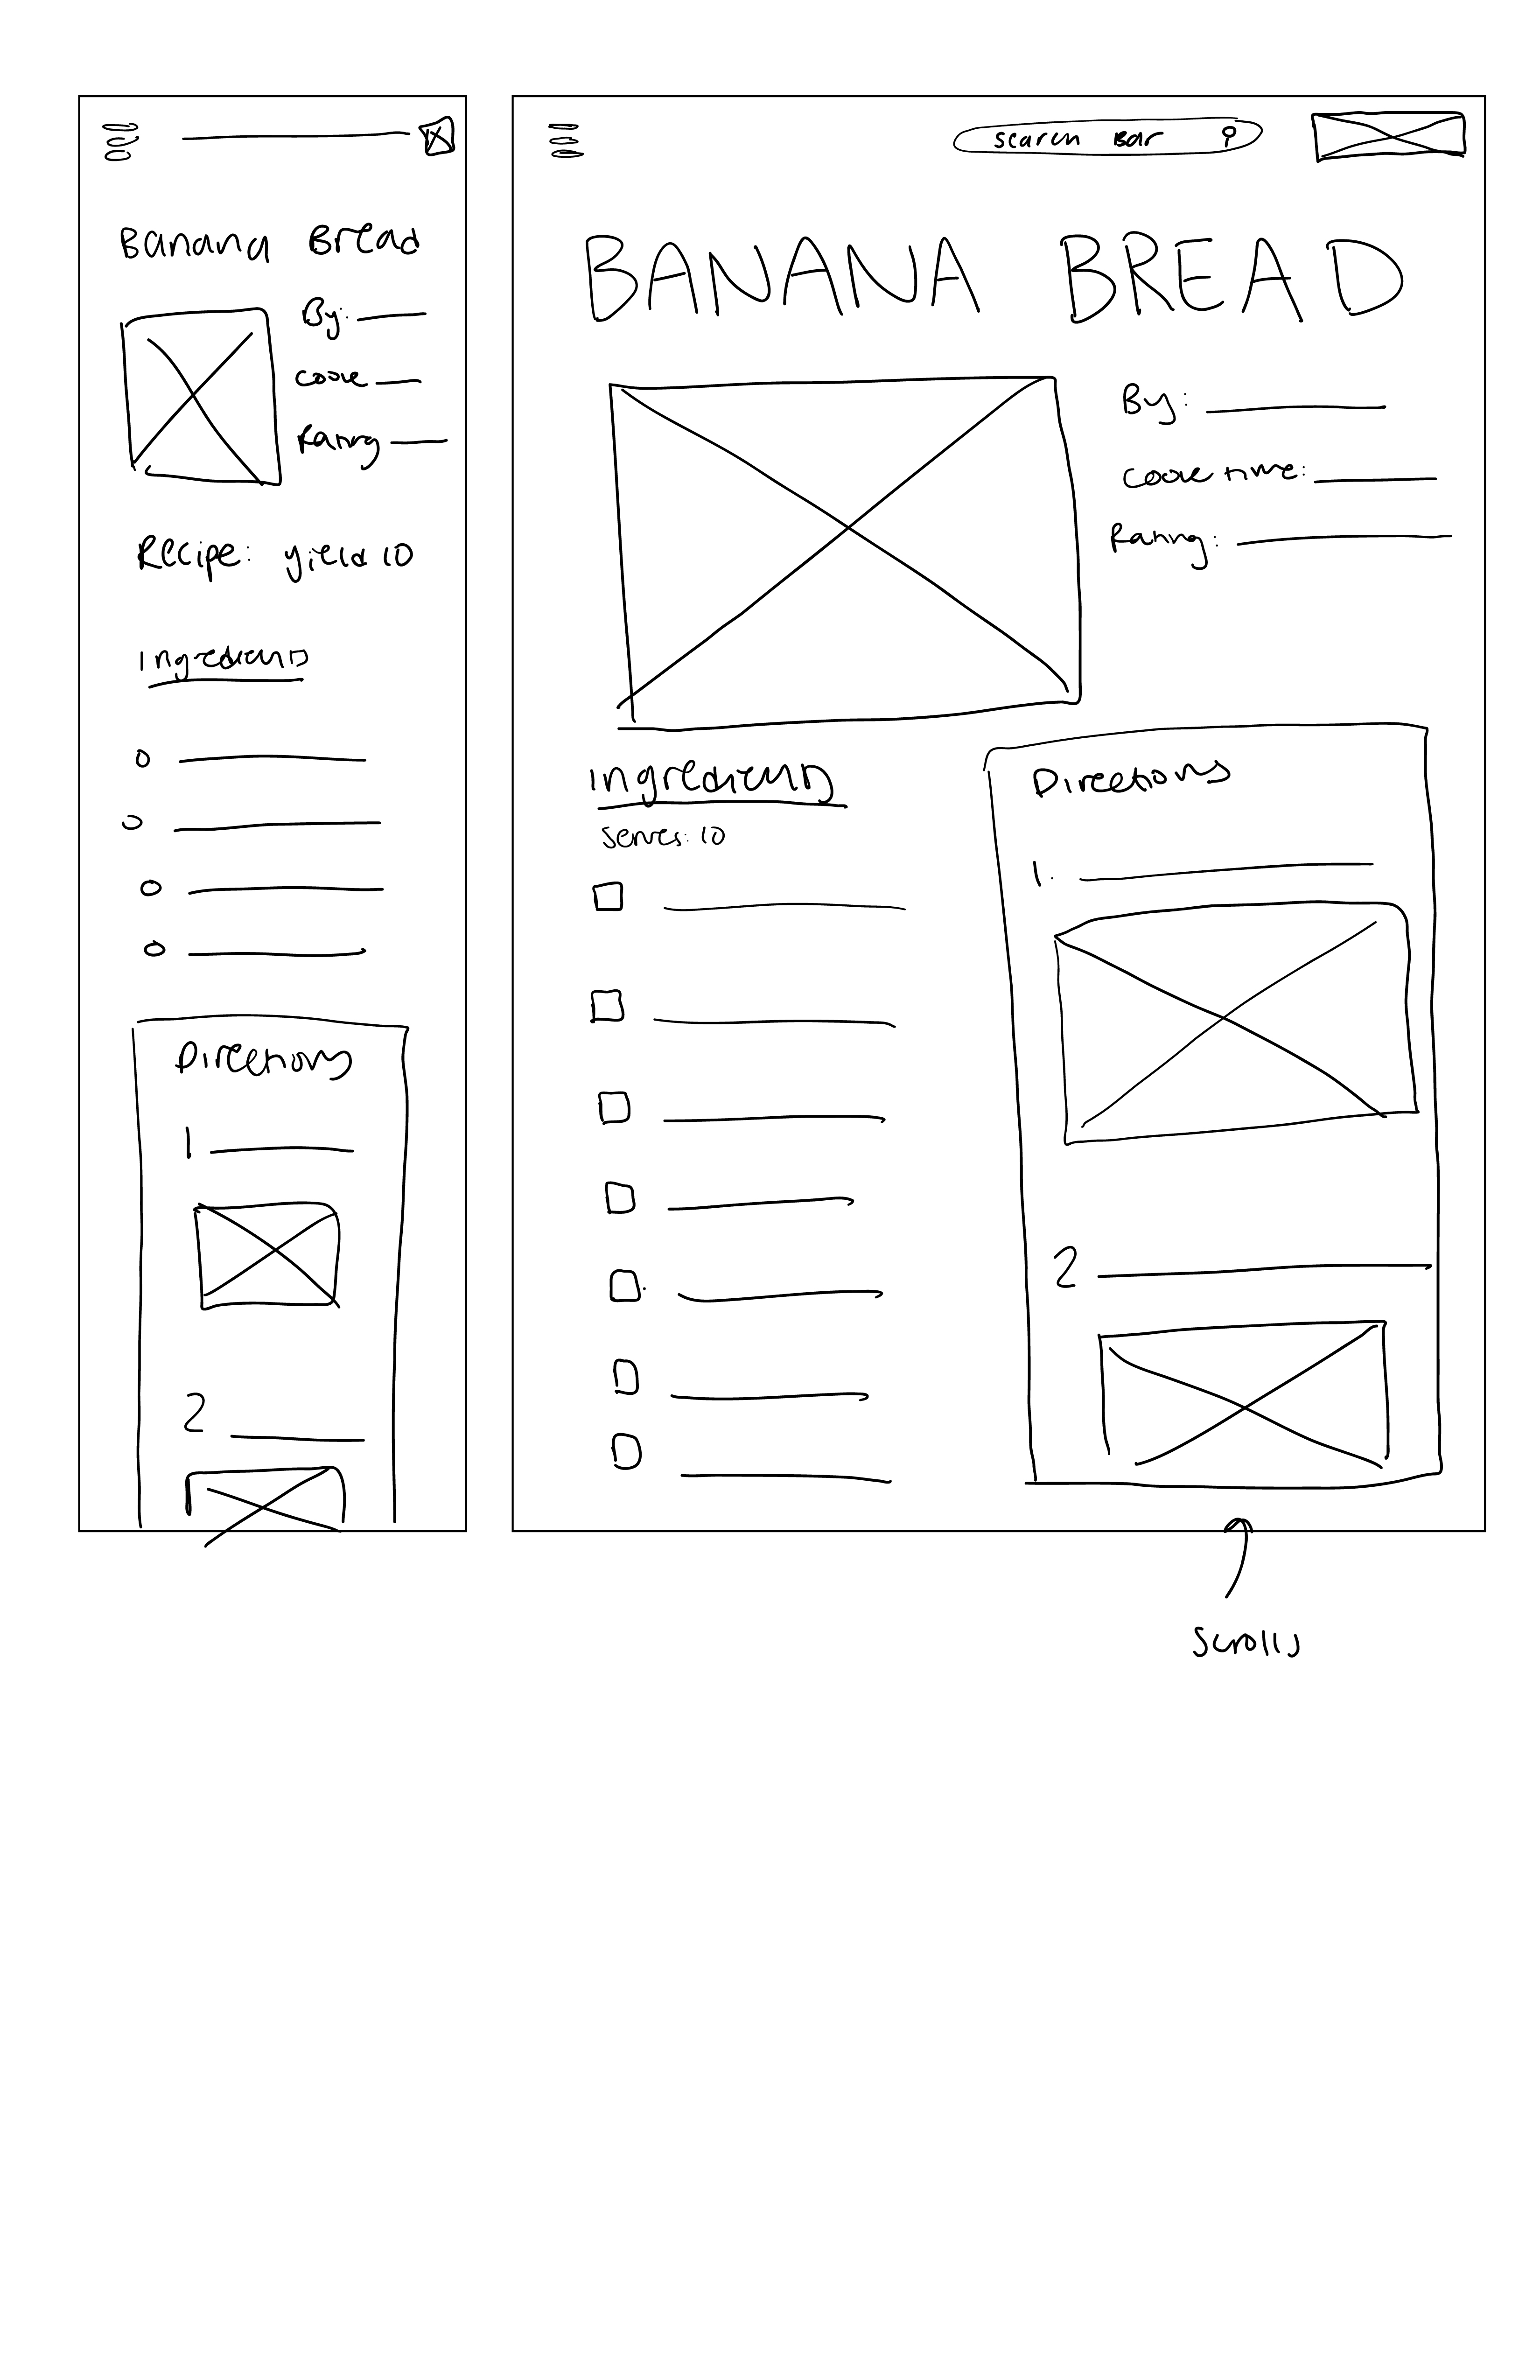 Banana Bread
By:
Cook
Rating
Recipe: yield 10
Ingredients
Directions
1
2
search Bar
BANANA BREAD
By:
Cook time:
Rating:
Ingredients
Serves: 10
Directions
1.
2
scrolls